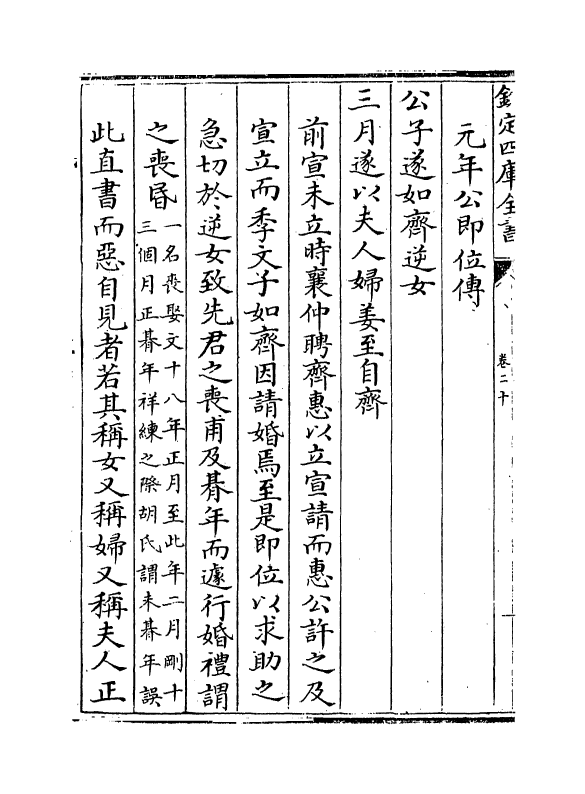 欽定四庫全書
卷二十
元年公即位傳
公子遂如齊逆女
三月遂以夫人婦姜至自齊
前宣未立時襄仲聘齊惠以立宣請而惠公許之及
宣立而季文子如齊因請婚焉至是即位以求助之
急切於逆女致先君之喪甫及朞年而遽行婚禮謂
之喪昏
一名喪娶文十八年正月至此年二月剛十
三個月正朞年祥練之際胡氏謂未朞年誤
此直書而惡自見者若其稱女又稱婦又稱夫人正